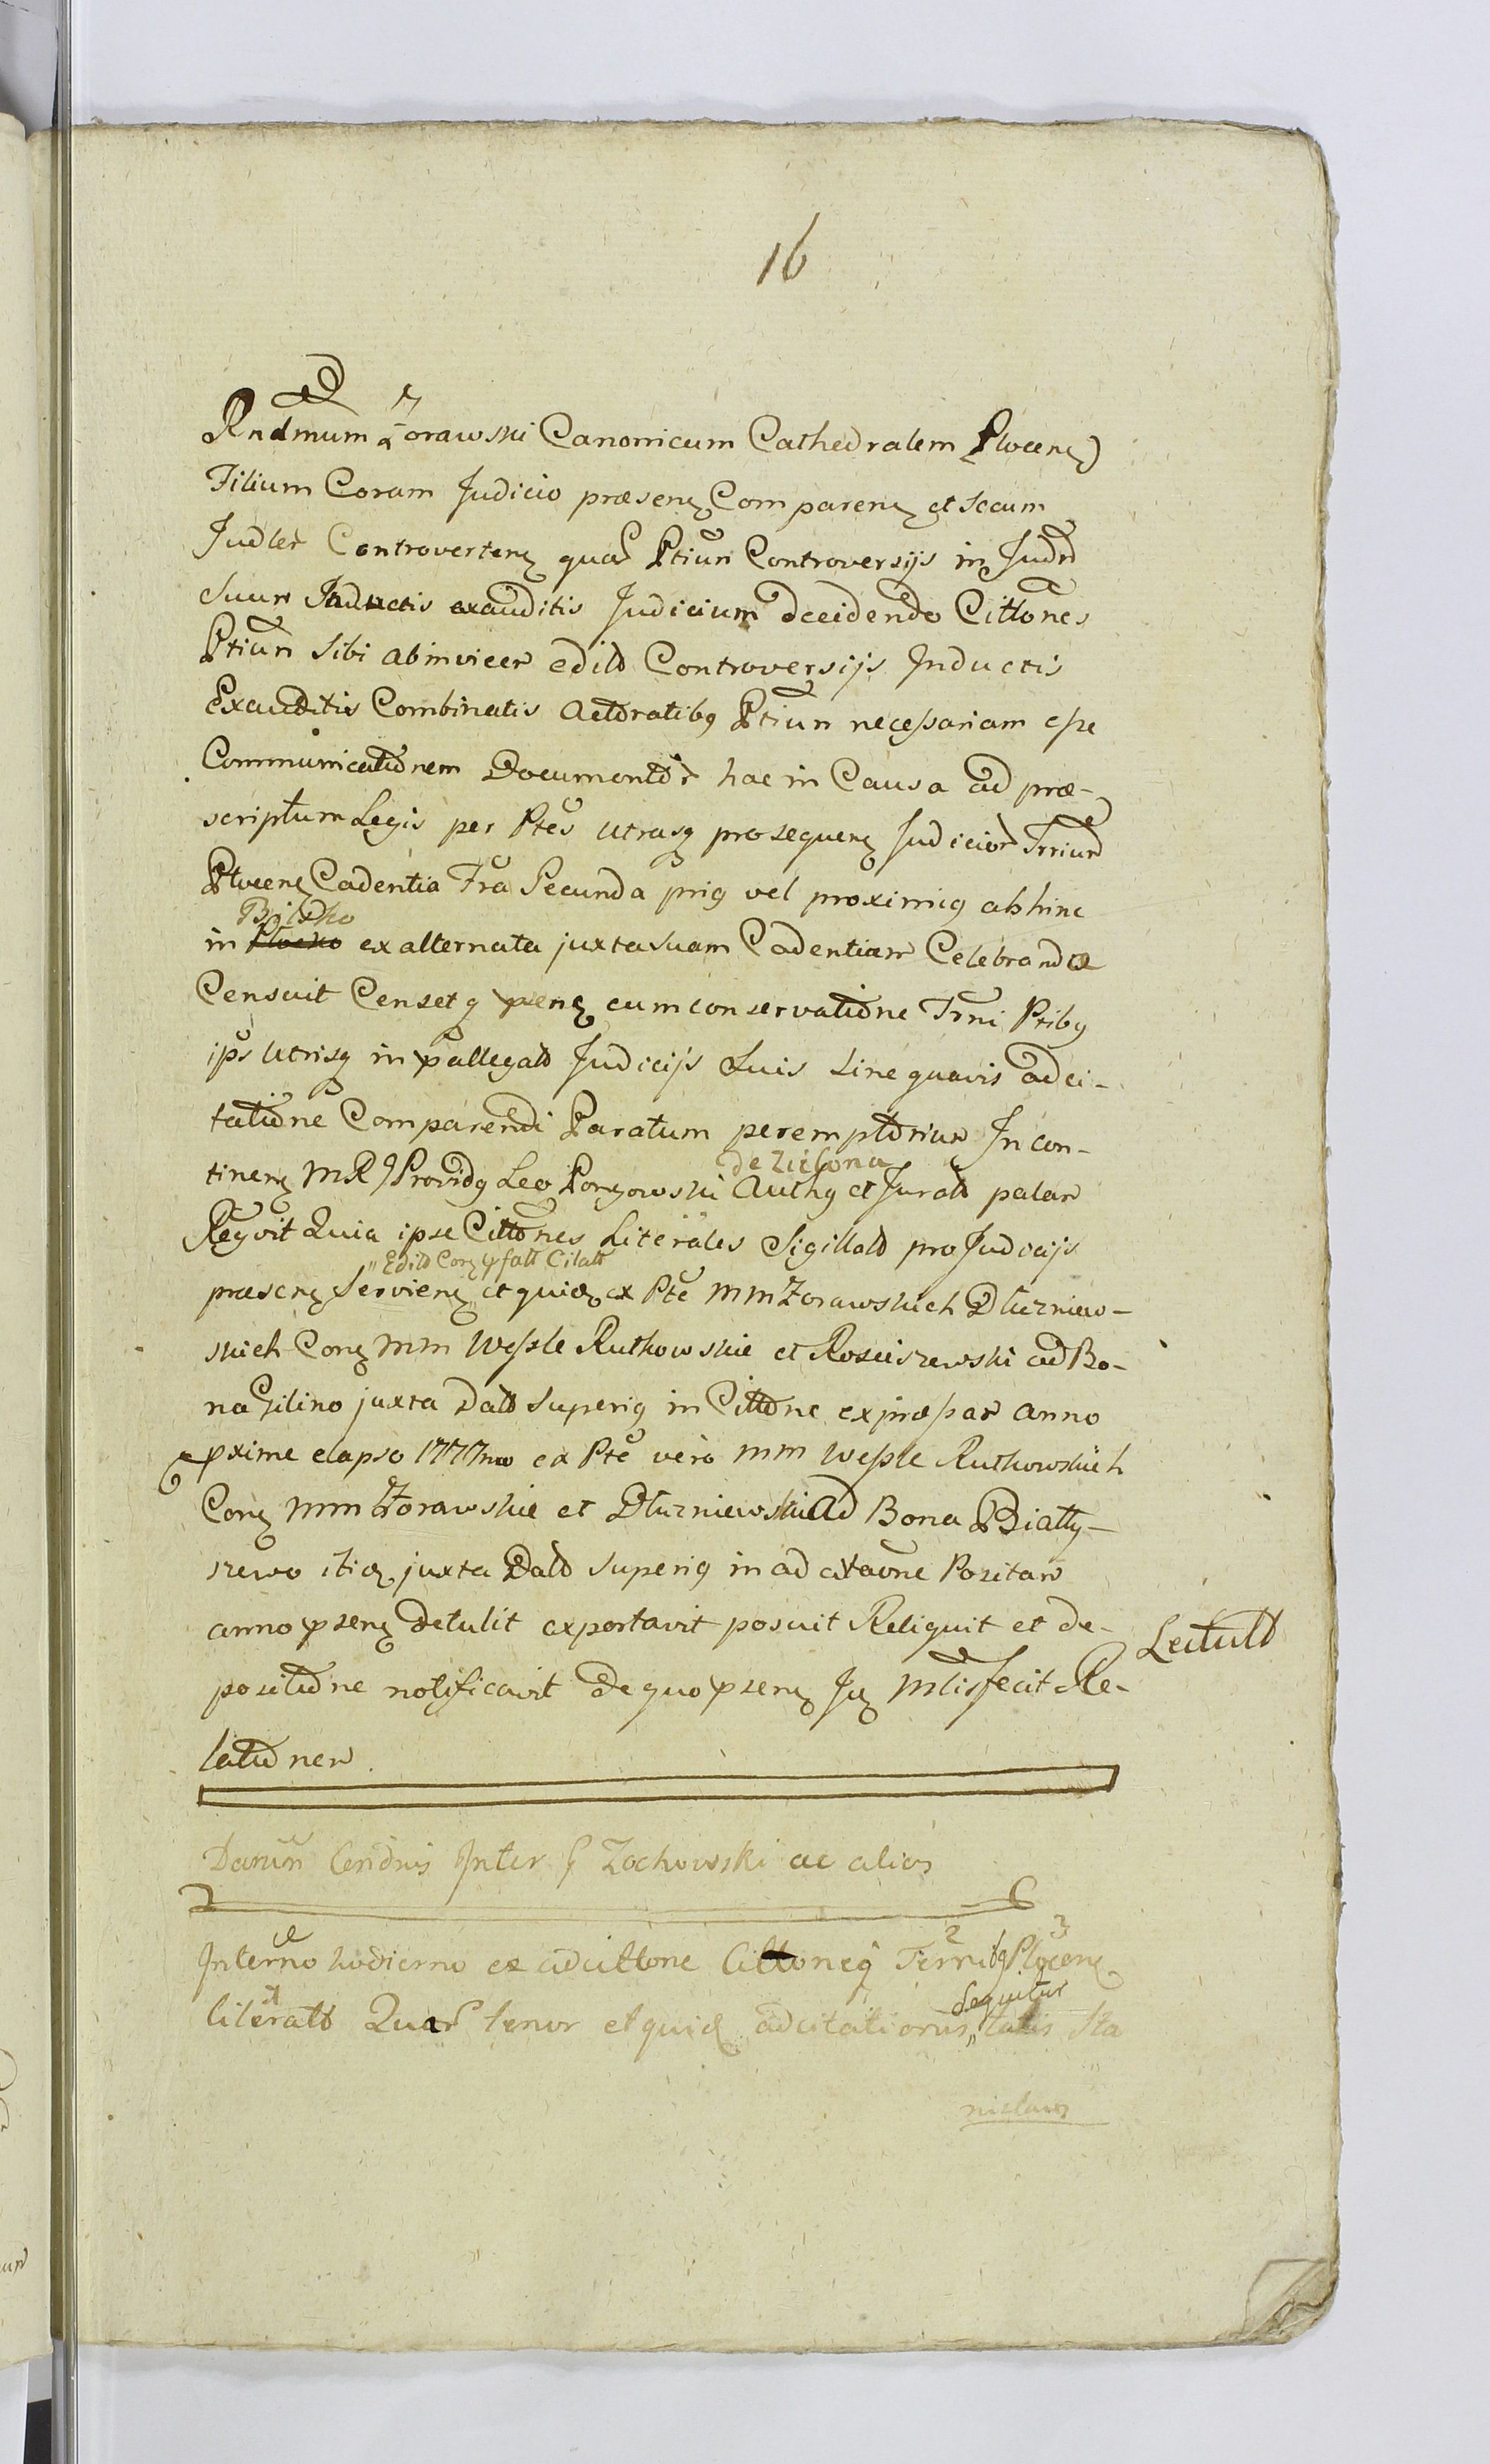 16
Rndmum Zorawski Canonicum Cathedralem Plocen
Filium Coram Judicio præsen Comparen et secum
Judler Controverten quar Ptium Controversijs in Judm
Suum Inductis exauditis Judicium decidendo Cittones
Ptium sibi abinvicem edito Controversijs Inductis
Exauditis Combinatis actoratibq Ptium necessariam esse
Communicationem Documentor hac in Causa ad præ-
scriptum Legis per Ptes utrasq prosequen Judicior Trrium
Plocen Cadentia Fra Secunda priq vel proximiq abhinc
Bilsko
in Plocko ex alternata juxta suam Cadentiam Celebranda
Censuit Censetq psen cum conservatione Trni Ptibq
ips utrisq in pallegato Judicijs Suis sine quavis adci-
tatione Comparendi Paratum peremptorium In con-
de Zielona
tinen MR Providq Leo Authq et Jurato palam
Recgvit Quia ipse Cittones Literales Sigillato pro Judicijs
Edito Con pfato Citato
præsen Servien et quid ex Pte MM Zorawskich Dluzniew-
skich Con MM Wessle Rutkowskie et Rosciszewski ad Bo-
na Gilino juxta Dato superiq in Cittone expressam anno
pxime elapso 1777mo ex Pte vero MM Wessle Rutkowskich
Con MM Zorawskie et Dluzniewskie ad Bona Bially-
szewo itid juxta Dato superiq in adcitaone Positam
anno psen detulit exportavit posuit Reliquit et de-
positione notificavit de quo psen Jud Mlis fecit Re-
Lectulto
lationem.
Damm Cendnis Inter G Zochowski ac alios
In termo hodierno ex adcittone Cittoneq Terri Plocen
sequitur
literato Quar tenor et quid adcitationis talis Sta
nislaus